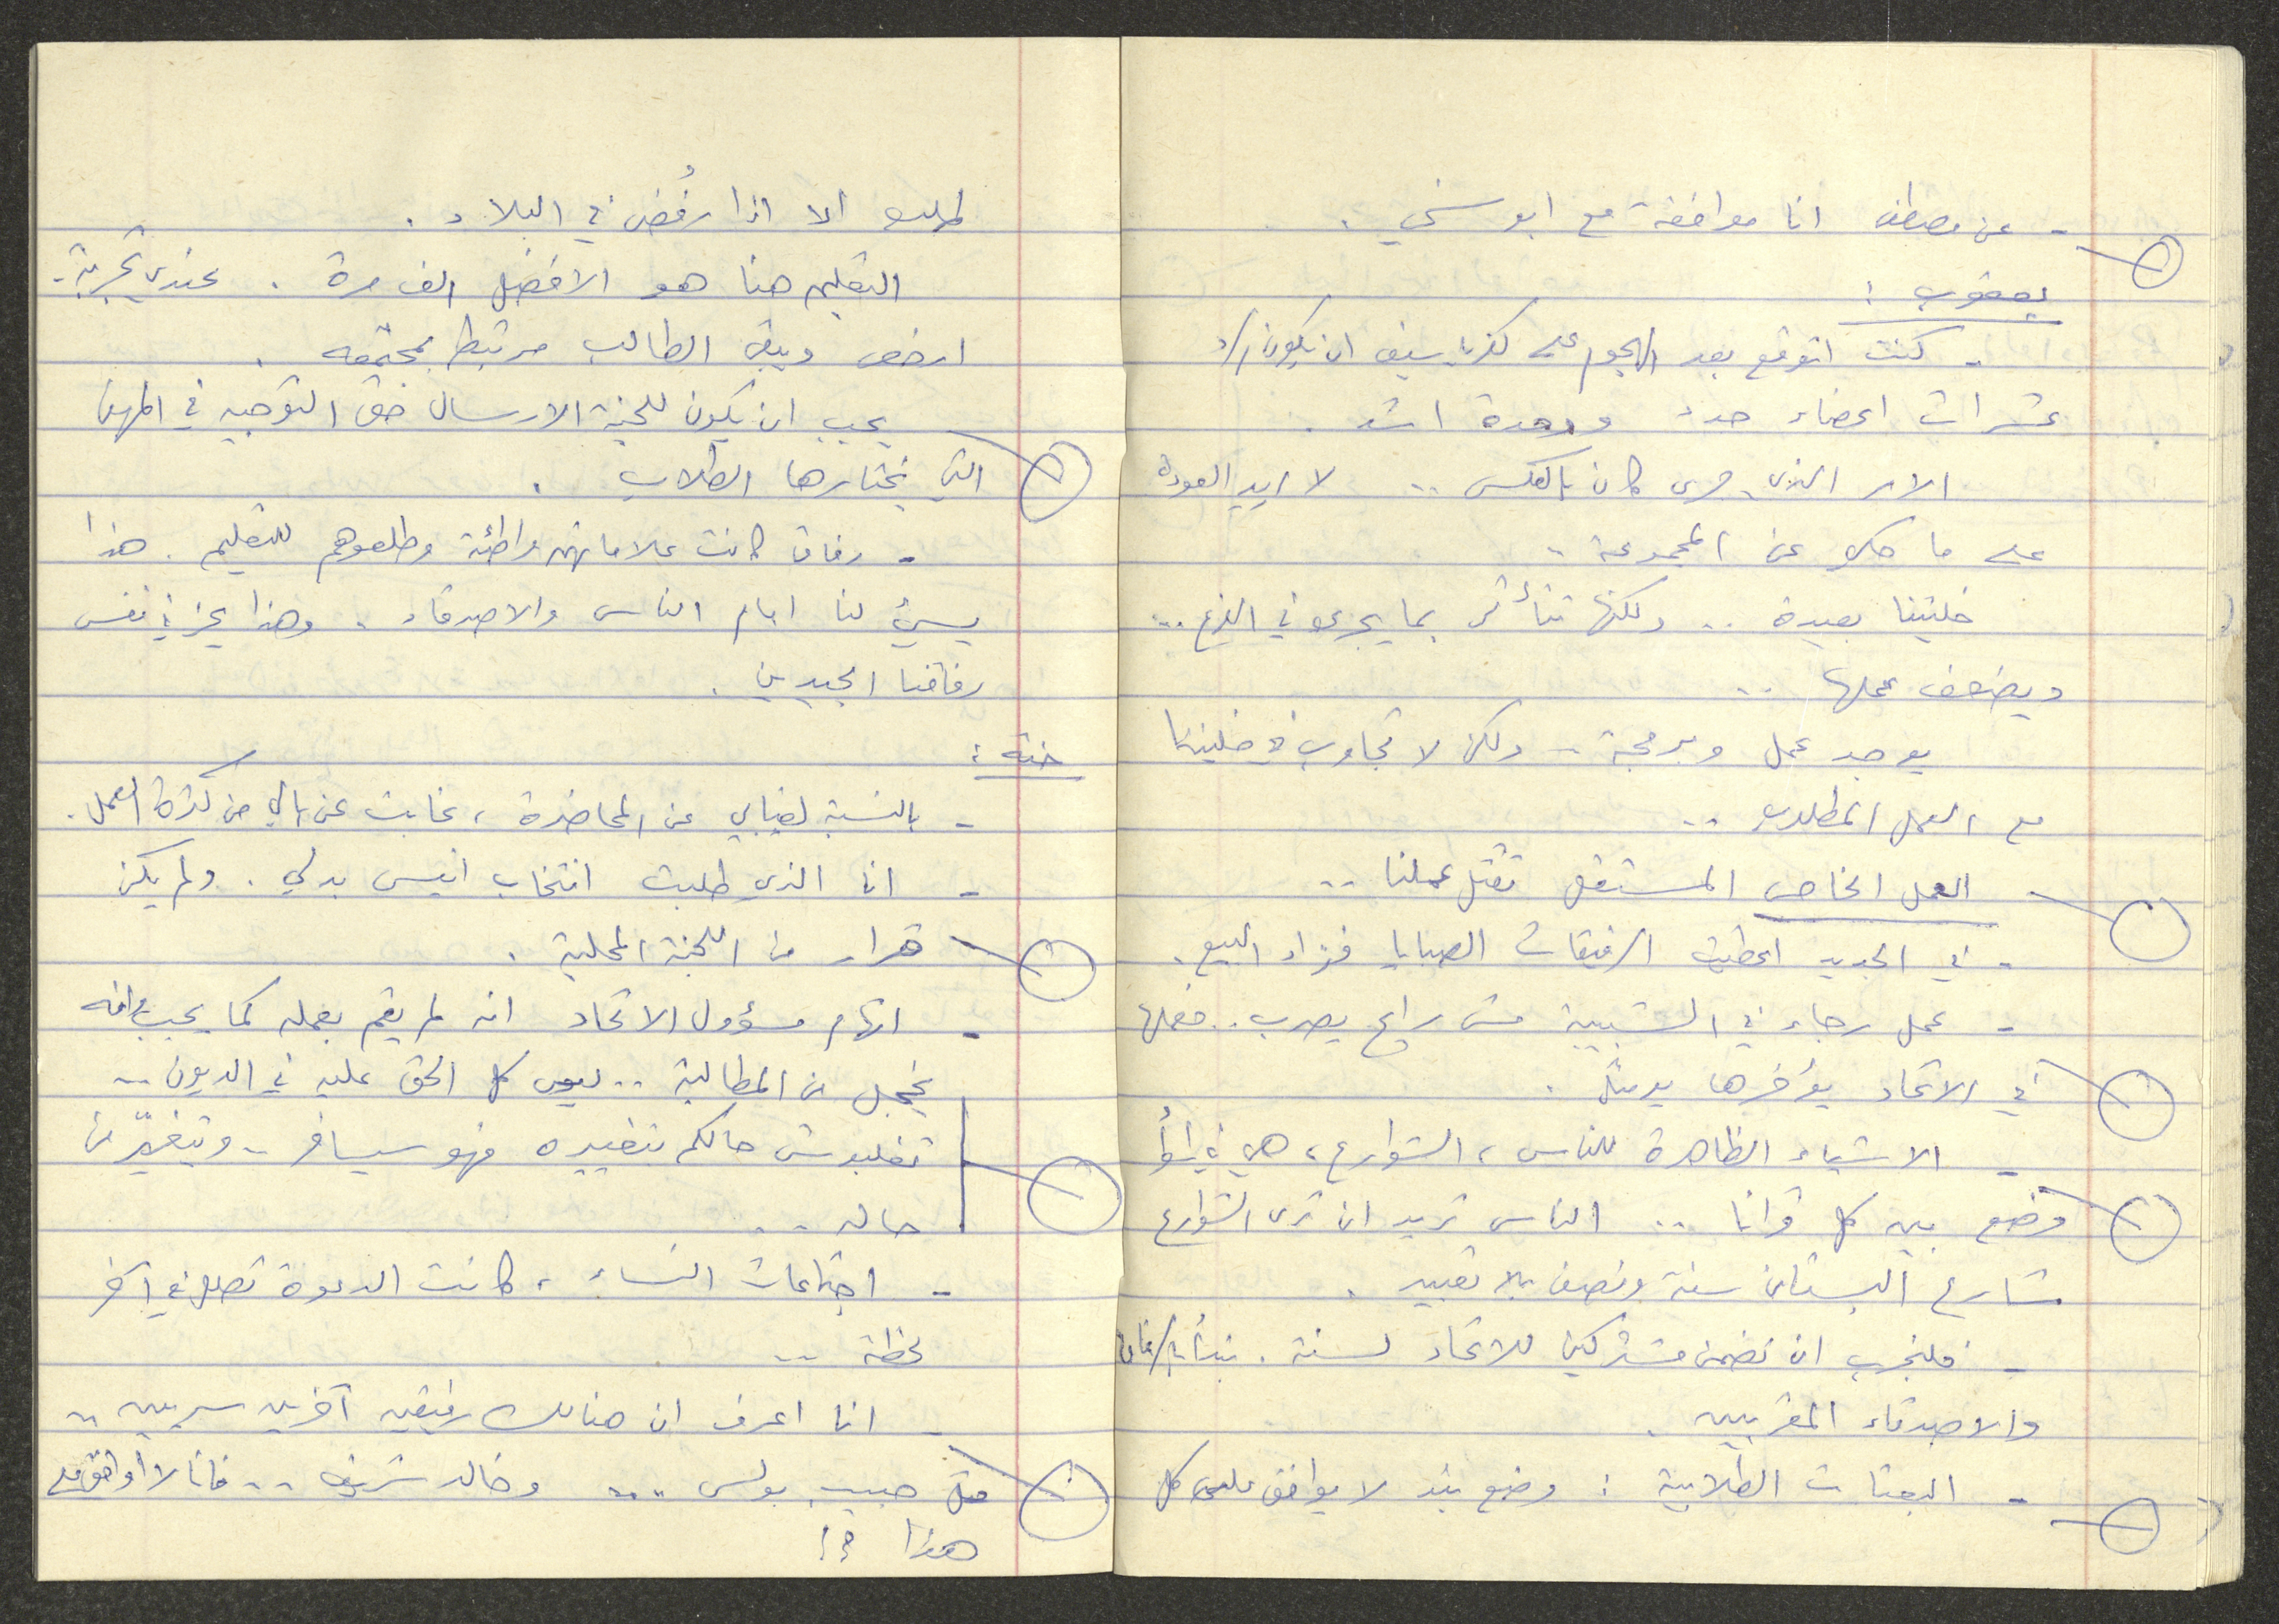 - عن مصطفى انا موافقة مع ابو سني .
يعقوب :
- كنت اتوقع بعد الهجوم على كفر ياسيف ان يكون
عشرات اعضاء جدد ووحدة اشد .
الامر الذي جرى كان بالعكس .. لا اريد العودة
على ما حكي عن المجموعة ..
خليتنا بعيدة .. ولكنها تتأثر بما يجري في الفرع ..
ويضعف عملها ..
يوجد عمل وبرمجة .. ولكن لا تجاوب في خليتنا
مع العمل المطلوب ..
- العمل الخاص المستقل تقتل عملنا ..
- في الجديد اعطيت الرفيقات الصبايا فزاد البيع .
- عمل رجاء في الشبيبة مش رايح يصرب .. فعملها
في الاتحاد
- الاشياء الظاهرة للناس ، الشوارع ، هي في اسوأ
وضع بين كل قرانا .. الناس تريد ان ترى الشوارع
شارع البستان سنة ونصف بلا تعبيد .
- فلنجرب ان نضمن مشتركين للاتحاد لسنة . نبدأ بالرفاق
والاصدقاء المقربين .
- البعثات الطلابية : وضع بند لا يوافق على كل
طلب الا اذا رُفض في البلاد .
التعليم هنا هو الافضل الف مرة . عندي تجربة -
ارخص ويبقى الطالب مرتبط بمجتمعه .
يجب ان يكون للجنة الارسال حق التوجيه في المهن
التي يختارها الطلاب .
- رفاق كانت علاماتهم واطئة وطلعوهم للتعليم . هذا
يسيء لنا امام الناس والاصدقاء . وهذا يحز في نفس
رفاقنا الجيدين .
:
- بالنسبة لغيابي عن المحاضرة ، غابت عن بالي من كثرة العمل .
- انا الذي طلبت انتخاب انيس بدلي . ولم يكن
قرار من اللجنة المحلية .
- اتهام مسؤول الاتحاد انه لم يقم بعمله كما يجب وانه
يخجل من المطالبة .. ليس كل الحق عليه في الديون ..
تغلبوش حالكم بتغييره فهو سيسافر .. وبتغيّر من
حاله ..
- اجتماعات النساء ، كانت الدعوة تصل في آخر
لحظة ..
- انا اعرف ان هنالك رفيقين آخرين سريين ..
مثل حبيب بولس ... وخالد شريف .. فانا لا أوافق على
هذا ؟!